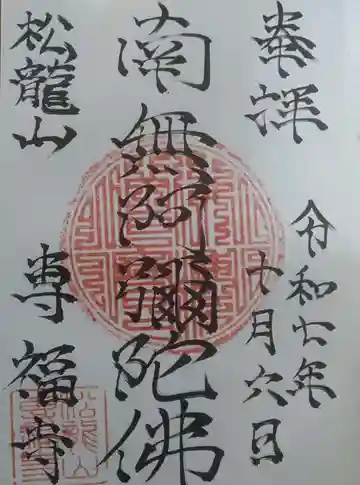 奉拝
令和七年
十月六日
南無阿彌陀佛
松龍山
専福寺
松龍山